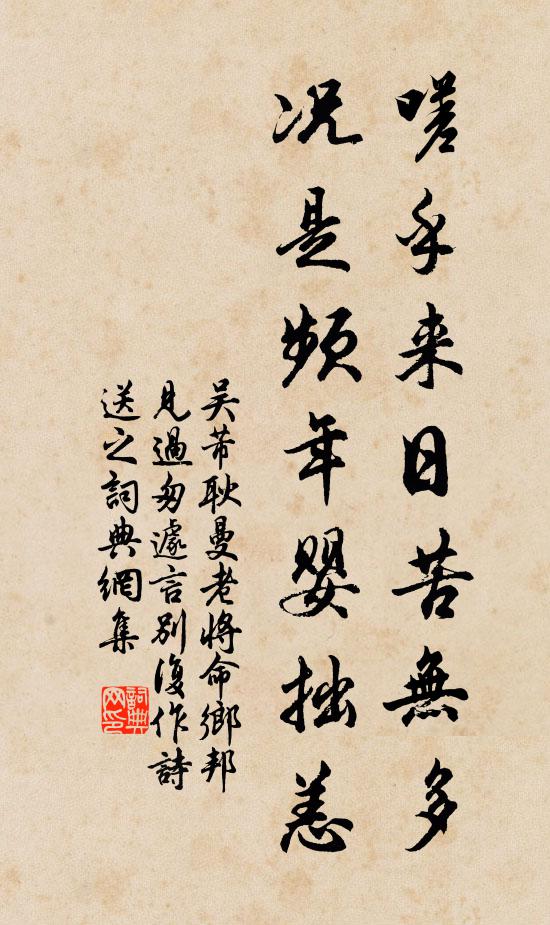 嗟乎来日苦無多
况是频年婴拙恙
吴芾耿曼老将命鄉邦
見過匆遽言别復作詩
送之詞典網集
詞典网印